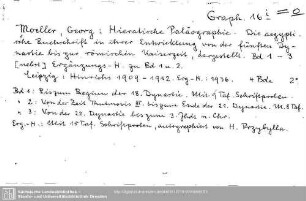 Graph. 16:
Moeller, Georg: Hieratische Paläographie. Die aegypti-
sche Buchschrift in ihrer Entwicklung von der fünften Dy-
nastie bis zur römischen Kaiserzeit, dargestellt. Bd 1 - 3
[nebst] Ergänzungs-H. zu Bd 1 u. 2.
Leipzig: Hinrichs 1909 - 1936. 4 Bde 2°
Bd 1: Bis zum Beginn der 18. Dynastie. Mit 9 Taf. Schriftproben
" 2: Von der Zeit Thutmosis III. bis zum Ende der 21. Dynastie. M. 8 Taf.
" 3: Von der 22. Dynastie bis zum 3. Jhdt n. Chr.
Erg.-H.: Mit 15 Taf. Schriftproben, autographiert von H. Przybylla.
Sächsische Landesbibliothek -
Staats- und Universitätsbibliothek Dresden